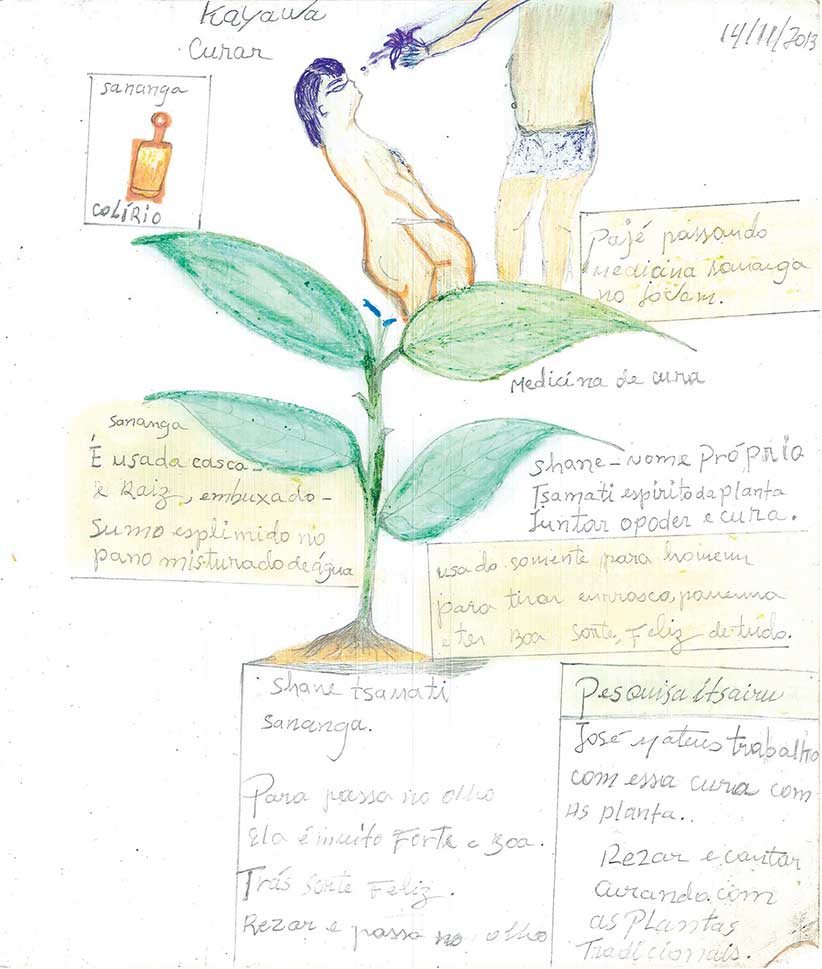 Kayawa
Curar
14/11/2013
sananga
COLÍRIO
Pajé passando
medicina sananga
no
Medicina de cura
sananga
É usada casca
e Raiz, embuxado -
Sumo esplimido no
pano misturado de água
shane - nome PRÓPRIO
Tsamati espírito da planta
Juntar o poder e cura.
usado somente para homem
para tirar enrrasco, panema
e ter Boa sorte, Feliz de tudo.
Shane tsamati
sananga.
Para passa no olho
Ela é muito Forte e Boa.
Trás sorte Feliz.
Rezar e passa no olho
Pesquisa itsairu
José Mateus trabalho
com essa cura com
As planta..
Rezar e cantar
curando com
as PLANTAS
Tradicionais.